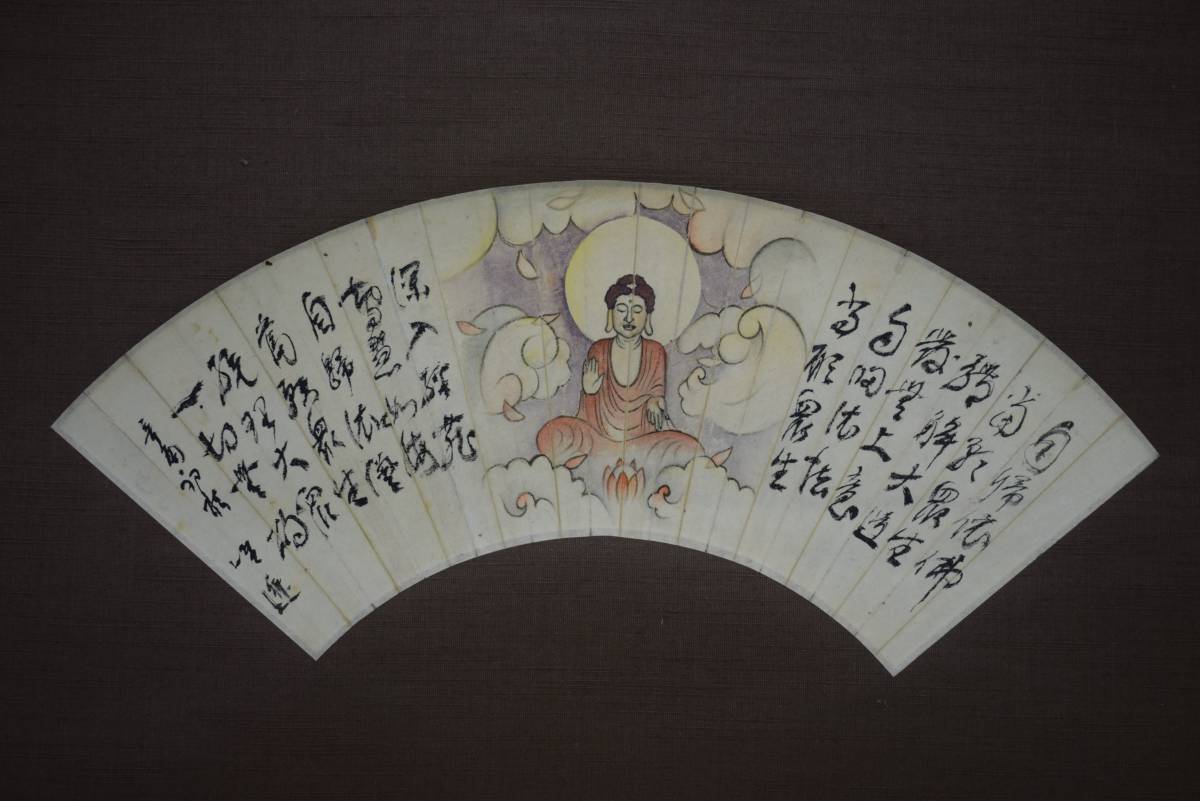 自帰依佛
當願眾生
體解大道
發無上意
自帰依法
當願眾生
深入経蔵
智慧如海
自歸依僧
當願衆生
統理大衆
一切無礙